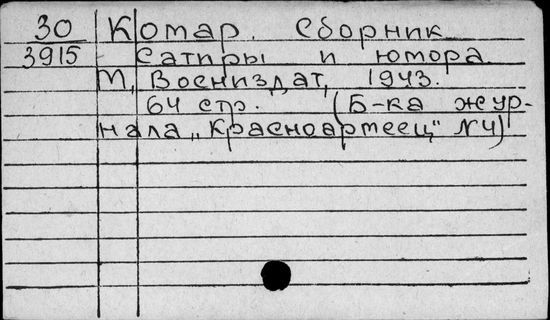 30 Комар. Сборник
3915 Сатиры и юмора.
М, Воениздат, 1943.
64 стр. (Б-ка жур-
нала „Красноармеец" №4)